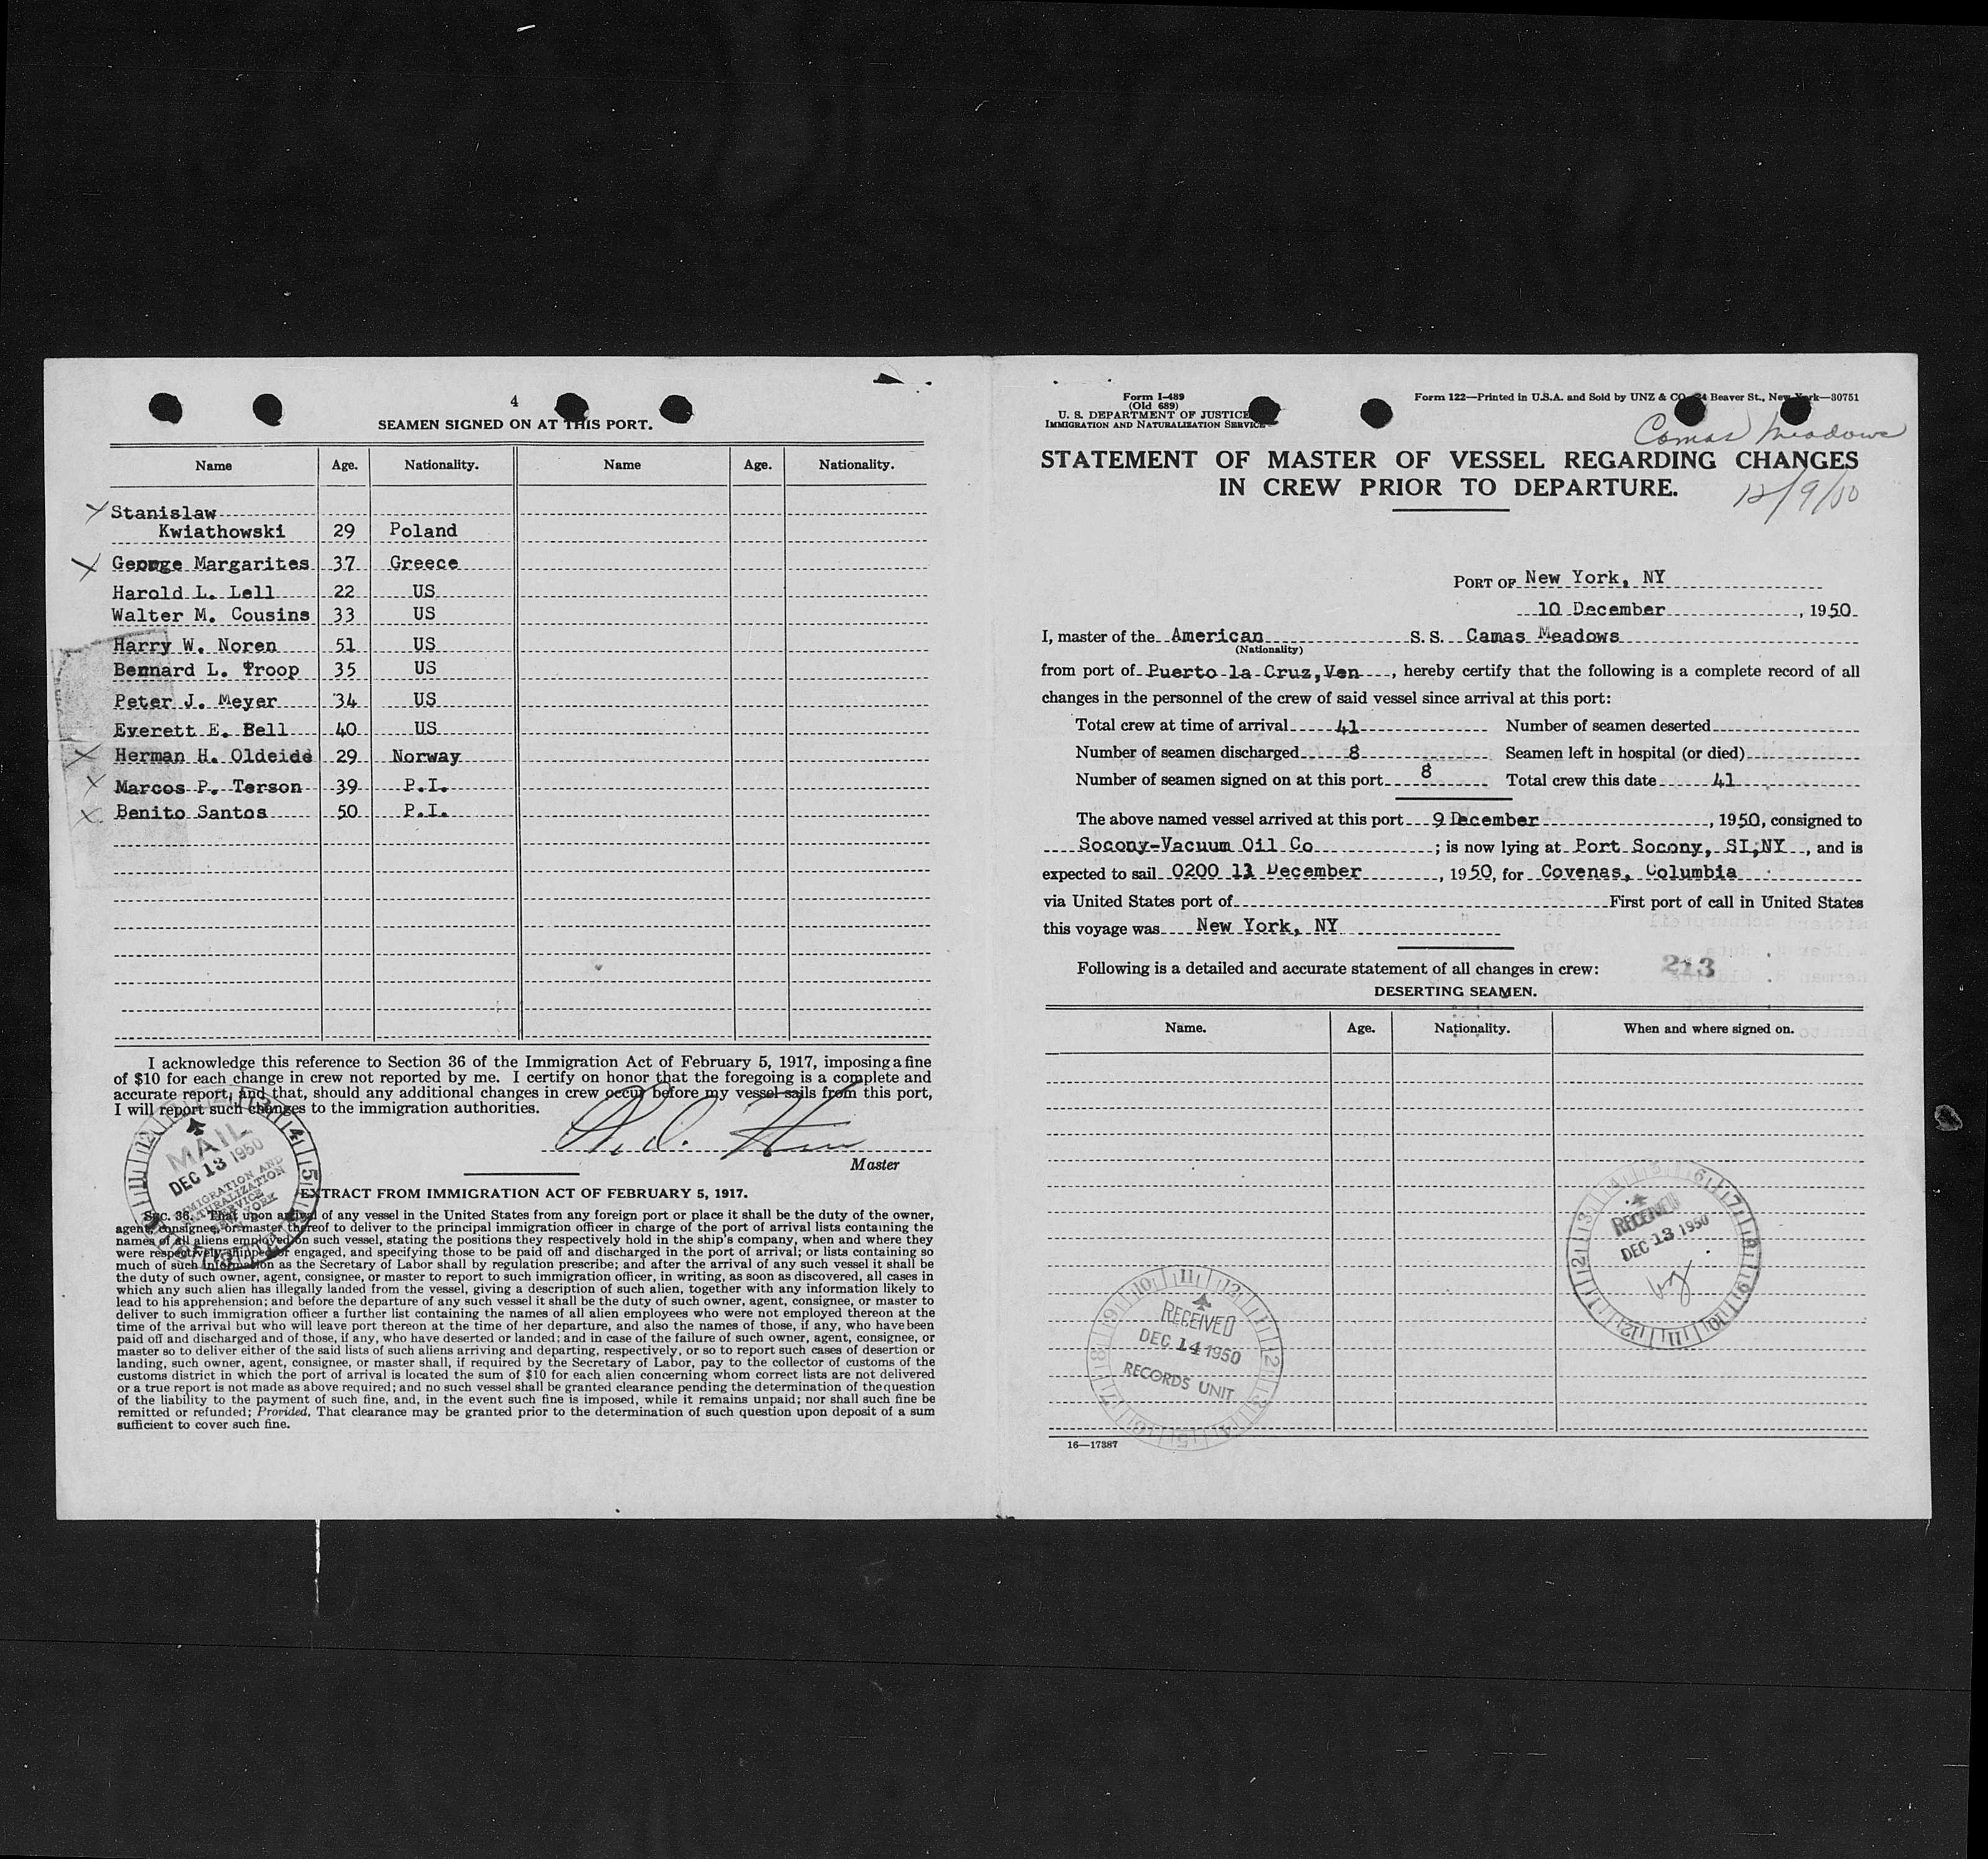 4
SEAMEN SIGNED ON AT THIS PORT.
Name Age. Nationality. Name Age. Nationality.
Stanislaw
Kwiathowski 29 Poland
George Margarites 37 Greece
Harold L. Lell 22 US
Walter M. Cousins 33 US
Harry W. Noren 51 US
Bernard L. Troop 35 US
Peter J. Meyer 34 US
Everett E. Bell 40 US
Herman H. Oldeide 29 Norway
Marcos P. Terson 39 P.I.
Benito Santos 50 P.I.
I acknowledge this reference to Section 36 of the Immigration Act of February 5, 1917, imposing a fine
of $10 for each change in crew not reported by me. I certify on honor that the foregoing is a complete and
accurate report, and that, should any additional changes in crew occur before my vessel sails from this port,
I will report such changes to the immigration authorities.
Master
MAIL
DEC 13 1950
IMMIGRATION AND
NATURALIZATION
SERVICE
NEW YORK
EXTRACT FROM IMMIGRATION ACT OF FEBRUARY 5, 1917.
Sec. 36. That upon arrival of any vessel in the United States from any foreign port or place it shall be the duty of the owner,
agent, consignee, or master thereof to deliver to the principal immigration officer in charge of the port of arrival lists containing the
names of all aliens employed on such vessel, stating the positions they respectively hold in the ship's company, when and where they
were respectively shipped or engaged, and specifying those to be paid off and discharged in the port of arrival; or lists containing so
much of such information as the Secretary of Labor shall by regulation prescribe; and after the arrival of any such vessel it shall be
the duty of such owner, agent, consignee, or master to report to such immigration officer, in writing, as soon as discovered, all cases in
which any such alien has illegally landed from the vessel, giving a description of such alien, together with any information likely to
lead to his apprehension; and before the departure of any such vessel it shall be the duty of such owner, agent, consignee, or master to
deliver to such immigration officer a further list containing the names of all alien employees who were not employed thereon at the
time of the arrival but who will leave port thereon at the time of her departure, and also the names of those, if any, who have been
paid off and discharged and of those, if any, who have deserted or landed; and in case of the failure of such owner, agent, consignee, or
master so to deliver either of the said lists of such aliens arriving and departing, respectively, or so to report such cases of desertion or
landing, such owner, agent, consignee, or master shall, if required by the Secretary of Labor, pay to the collector of customs of the
customs district in which the port of arrival is located the sum of $10 for each alien concerning whom correct lists are not delivered
or a true report is not made as above required; and no such vessel shall be granted clearance pending the determination of the question
of the liability to the payment of such fine, and, in the event such fine is imposed, while it remains unpaid; nor shall such fine be
remitted or refunded; Provided, That clearance may be granted prior to the determination of such question upon deposit of a sum
sufficient to cover such fine.
Form I-489
(Old 689)
U. S. DEPARTMENT OF JUSTICE
IMMIGRATION AND NATURALIZATION SERVICE
Form 122—Printed in U.S.A. and Sold by UNZ & CO., 24 Beaver St., New York—30751
Camas Meadows
STATEMENT OF MASTER OF VESSEL REGARDING CHANGES
IN CREW PRIOR TO DEPARTURE.
12/9/50
PORT OF New York, NY
10 December, 1950
I, master of the American S. S. Camas Meadows
(Nationality)
from port of Puerto la Cruz, Ven, hereby certify that the following is a complete record of all
changes in the personnel of the crew of said vessel since arrival at this port:
Total crew at time of arrival 41 Number of seamen deserted
Number of seamen discharged 8 Seamen left in hospital (or died)
Number of seamen signed on at this port 8 Total crew this date 41
The above named vessel arrived at this port 9 December, 1950, consigned to
Socony-Vacuum Oil Co; is now lying at Port Socony, SI,NY, and is
expected to sail 0200 11 December, 1950, for Covenas, Columbia
via United States port of First port of call in United States
this voyage was New York, NY
Following is a detailed and accurate statement of all changes in crew: 213
DESERTING SEAMEN.
Name. Age. Nationality. When and where signed on.
RECEIVED
DEC 13 1950
RECEIVED
DEC 14 1950
RECORDS UNIT
16—17387